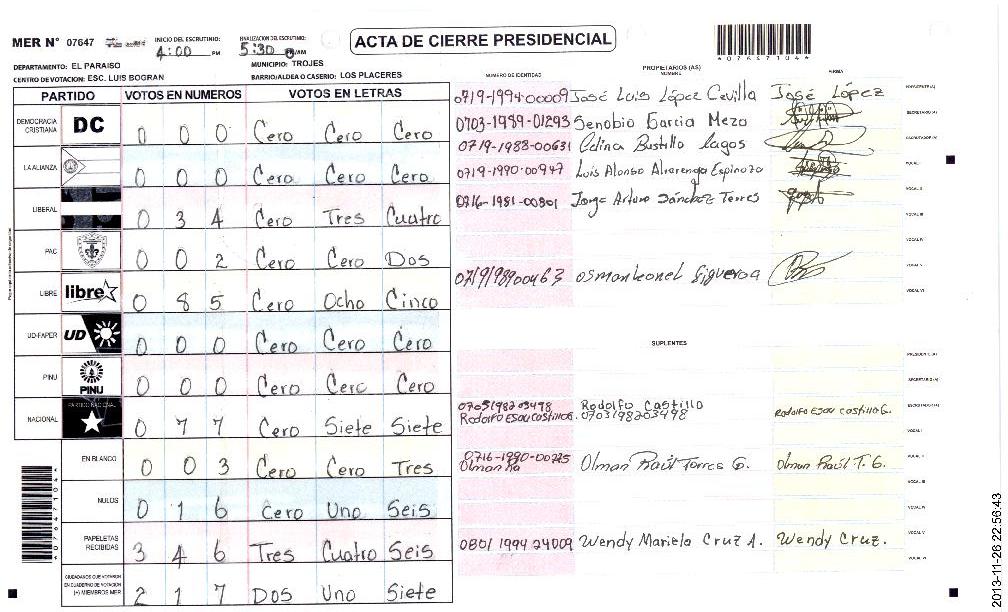 MER N° 07647
INICIO DEL ESCRUTINIO: 4:00 PM
FINALIZACION DEL ESCRUTINIO: 5:30
ACTA DE CIERRE PRESIDENCIAL
DEPARTAMENTO: EL PARAISO
MUNICIPIO: TROJES
CENTRO DE VOTACION: ESC. LUIS BOGRAN
BARRIO/ALDEA O CASERIO: LOS PLACERES
*07647104*
PARTIDO VOTOS EN NUMEROS VOTOS EN LETRAS
DEMOCRACIA CRISTIANA DC 0 0 0 Cero Cero Cero
LA ALIANZA 0 0 0 Cero Cero Cero
LIBERAL 0 3 4 Cero Tres Cuatro
PAC 0 0 2 Cero Cero Dos
LIBRE libre 0 8 5 Cero Ocho Cinco
UD-FAPER UD 0 0 0 Cero Cero Cero
PINU PINU 0 0 0 Cero Cero Cero
NACIONAL PARTIDO NACIONAL 0 7 7 Cero Siete Siete
EN BLANCO 0 0 3 Cero Cero Tres
NULOS 0 1 6 Cero Uno Seis
PAPELETAS RECIBIDAS 3 4 6 Tres Cuatro Seis
CIUDADANOS QUE VOTARON EN CUADERNO DE VOTACION (+) MIEMBROS MER 2 1 7 Dos Uno Siete
*07647104*
NUMERO DE IDENTIDAD
PROPIETARIOS (AS)
NOMBRE
FIRMA
0719-1994-00009 José Luis López Cevilla José López
0703-1989-01293 Senobio Garcia Meza
0719-1988-00631 Edina Bustillo Lagos
0719-1990-00947 Luis Alonso Alvarenga Espinoza
0716-1981-00801 Jorge Arturo Sánchez Torres
0719198900463 osmanleonel figueroa
SUPLENTES
0703198203498 Rodolfo Castillo
Rodolfo ESAU Castillo G. 0703198203498 Rodolfo ESau castillo G.
0716-1990-00225 Olman Raúl Torres G. Olman Raúl T. G.
Olman Ra
0801 1994 24009 Wendy Mariela Cruz A. Wendy Cruz.
2013-11-26 22:56:43